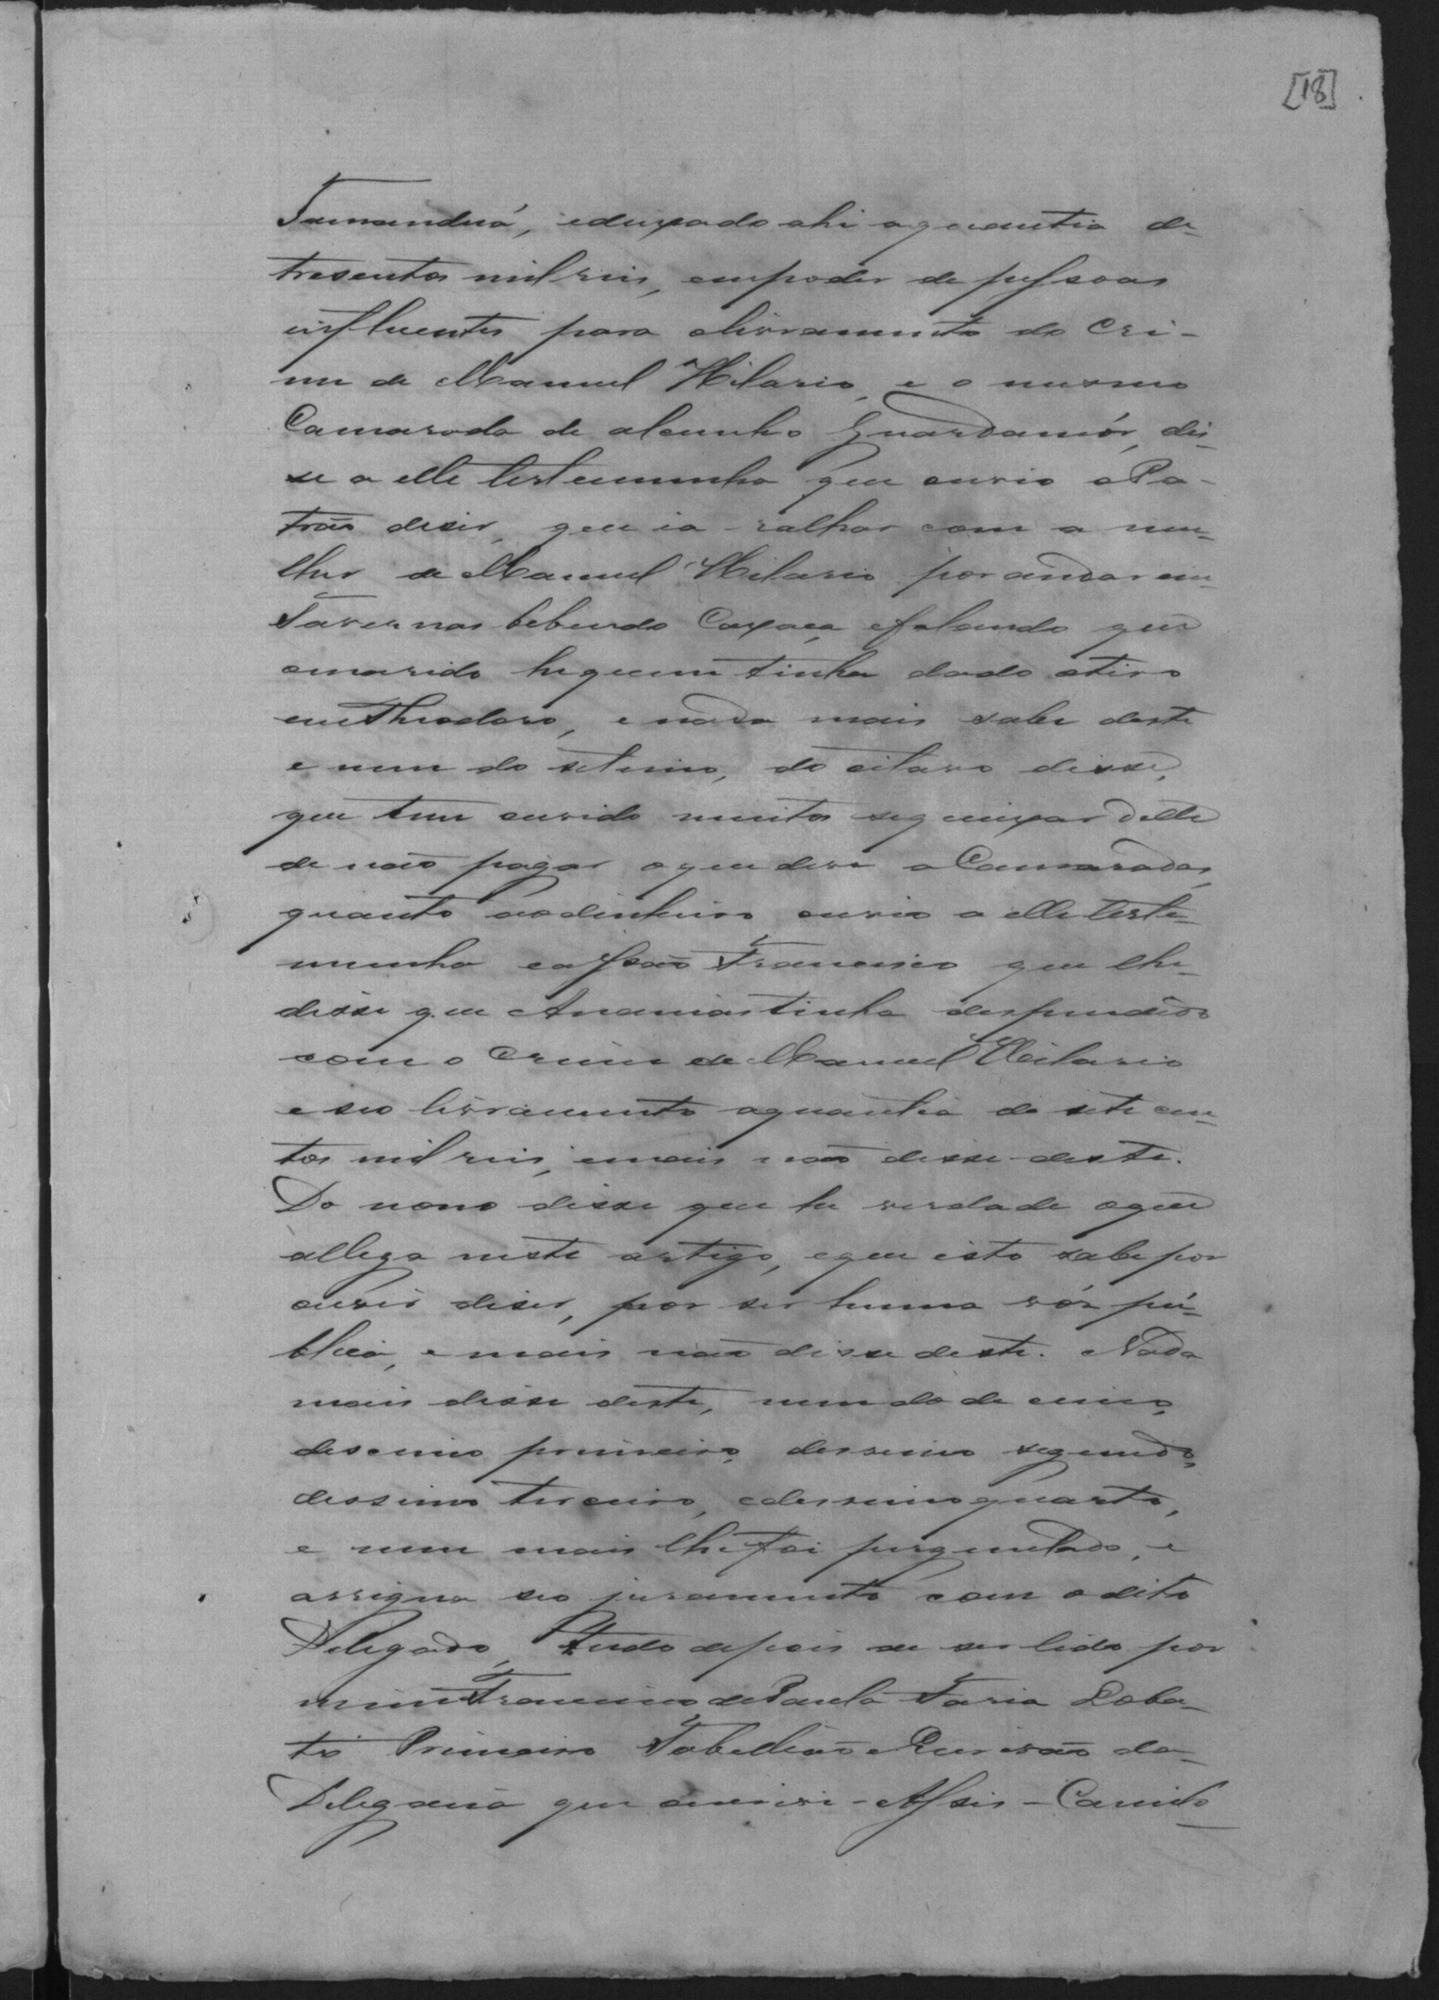 [18]
Tamanduá, edeixado ahi aquantia de
tresentos milreis, empoder de pessoas
influentes para olivramento do Cri-
me de Manuel Hilario, e o mesmo
Camarada de alcunho Guardamór, dis-
se a elle testemunha que ouvio o Pa-
trão diser, que ia ralhar com a mu-
lher de Manuel Hilario por andar em
Tavernas bebendo Caxaça efalando que
omarido hequem tinha dado otiro
emTheodoro, e nada mais sabe deste
e nem do setimo, do oitavo disse,
que tem ouvido muitos sequeixar delle
de não pagar oque deve a Camaradas,
quanto aodinheiro ouvio a elle teste-
munha eaJoão Francisco que lhe
disse que Ananias tinha despendido
com o Crime de Manuel Hilario
e seo livramento aquantia de sete cen-
tos mil reis, emais não disse deste.
Do nono disse que he verdade oque
allega neste artigo, eque isto sabe por
ouvir diser, por ser huma vóz pú-
blica, e mais não disse deste. Nada
mais disse deste, nem do decimo,
descimo primeiro, dessimo segundo,
dessimo terceiro, edessimoquarto,
e nem mais lhe foi perguntado, e
assigna seo juramento com o dito
Delegado, tudo depois de ser lido por
mim Francisco de Paula Faria Loba-
to Primeiro Tabellião eEscrivão da
Delegacia que escrivi - Assis - Camilo